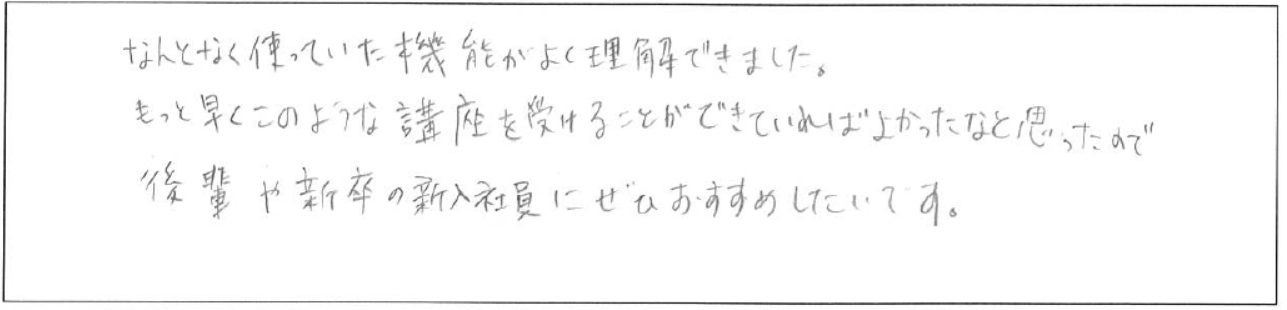 なんとなく使っていた機能がよく理解できました。
もっと早くこのような講座を受けることができていればよかったなと思ったので
後輩や新卒の新入社員にぜひおすすめしたいです。